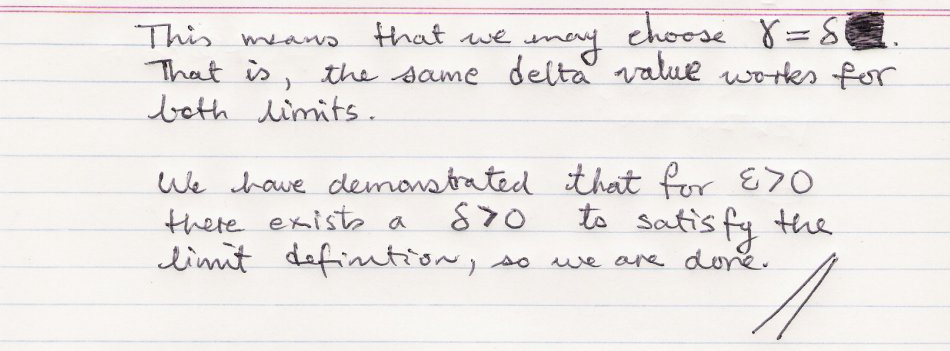 This means that we may choose γ = δ.
That is, the same delta value works for
both limits.
We have demonstrated that for ε>0
there exists a δ>0 to satisfy the
limit defintion, so we are done.